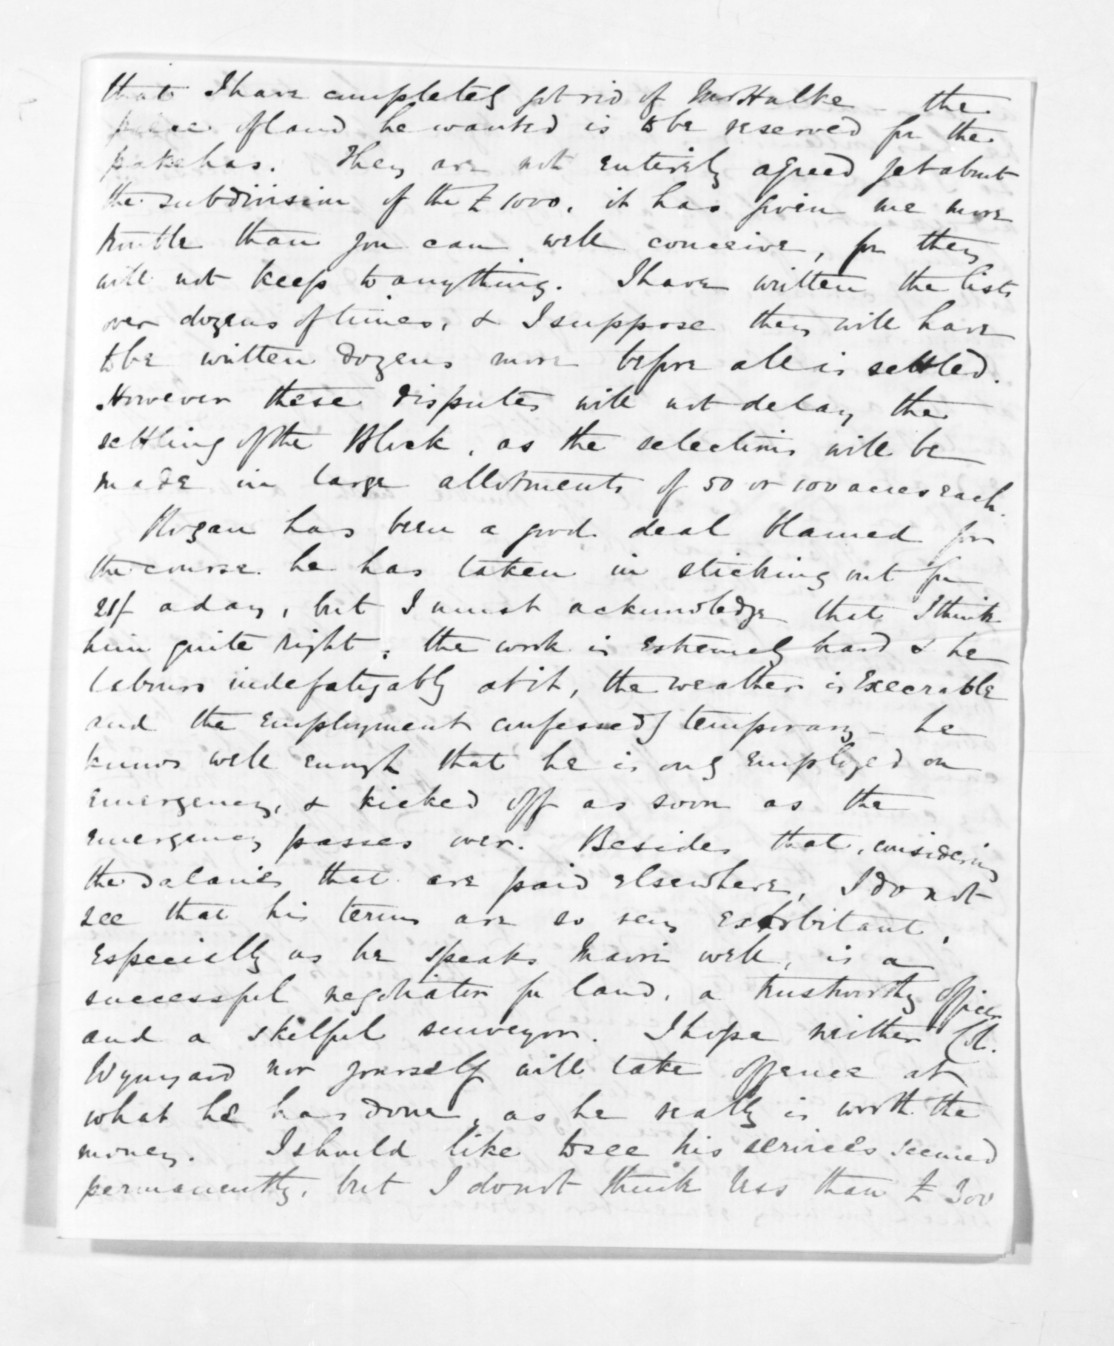 that I have completely got rid of Mr Hulke – the
piece of land he wanted is to be reserved for the
pakehas. They are not entirely agreed yet about
the subdivision of the £1000, it has given me more
trouble than you can well conceive, for they
will not keep to anything. I have written the lists
over dozens of times, & I suppose they will have
to be written dozens more before all is settled.
However these disputes will not delay the
settling of the Block, as the selections will be
made in large allotments of 50 or 100 acres each.
Rogan has been a good deal blamed for
the course he has taken in sticking out for
21/ a day, but I must acknowledge that I think
him quite right, the work is extremely hard & he
labours indefatigably at it, the weather is execrable
and the employment confessedly temporary – he
knows well enough that he is only employed on
emergency, & kicked off as soon as the
emergency passes over. Besides that, considering
the salaries that are paid elsewhere, I do not
see that his terms are so very exorbitant,
especially as he speaks Maori well, is a
successful negotiator for land, a trustworthy officer
and a skilful surveyor. I hope neither Col.
Wynyard nor yourself will take offence at
what he has done, as he really is worth the
money. I should like to see his services secured
permanently, but I do not think less than £300